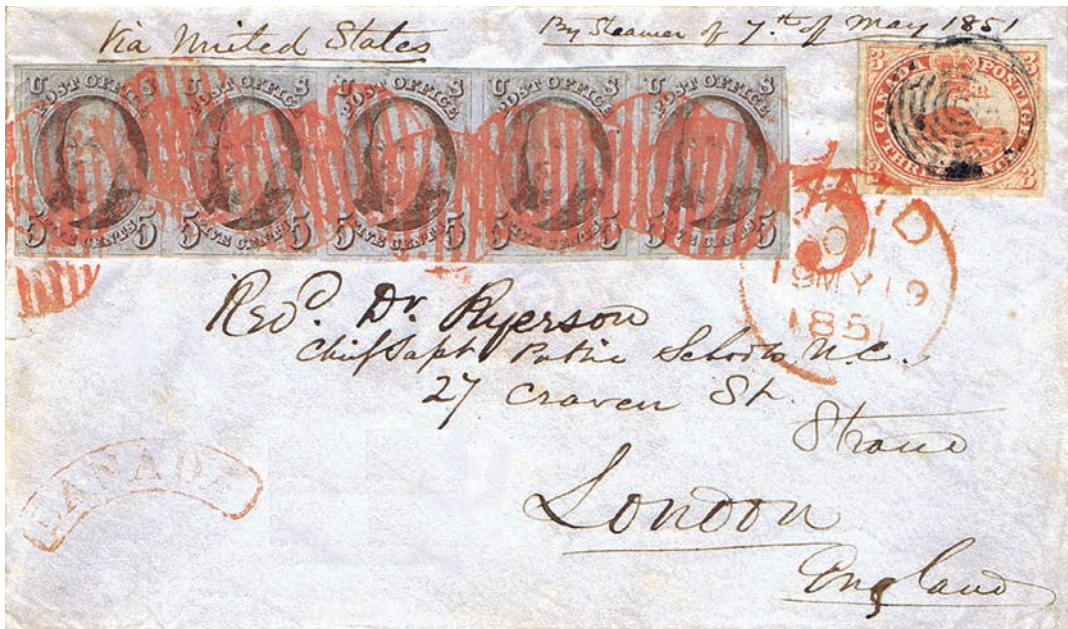 Via United States
By Steamer of 7th of May 1851
U S
POST OFFICE
5 FIVE CENTS 5
U S
POST OFFICE
5 FIVE CENTS 5
U S
POST OFFICE
5 FIVE CENTS 5
U S
POST OFFICE
5 FIVE CENTS 5
U S
POST OFFICE
5 FIVE CENTS 5
3 3
CANADA POSTAGE
THREE PENCE
3 3
3
PAID
19MY19
1851
Revd. Dr. Ryerson
Chief Supt Public Schools U.C.
27 Craven St.
Strand
London
England
CANADA